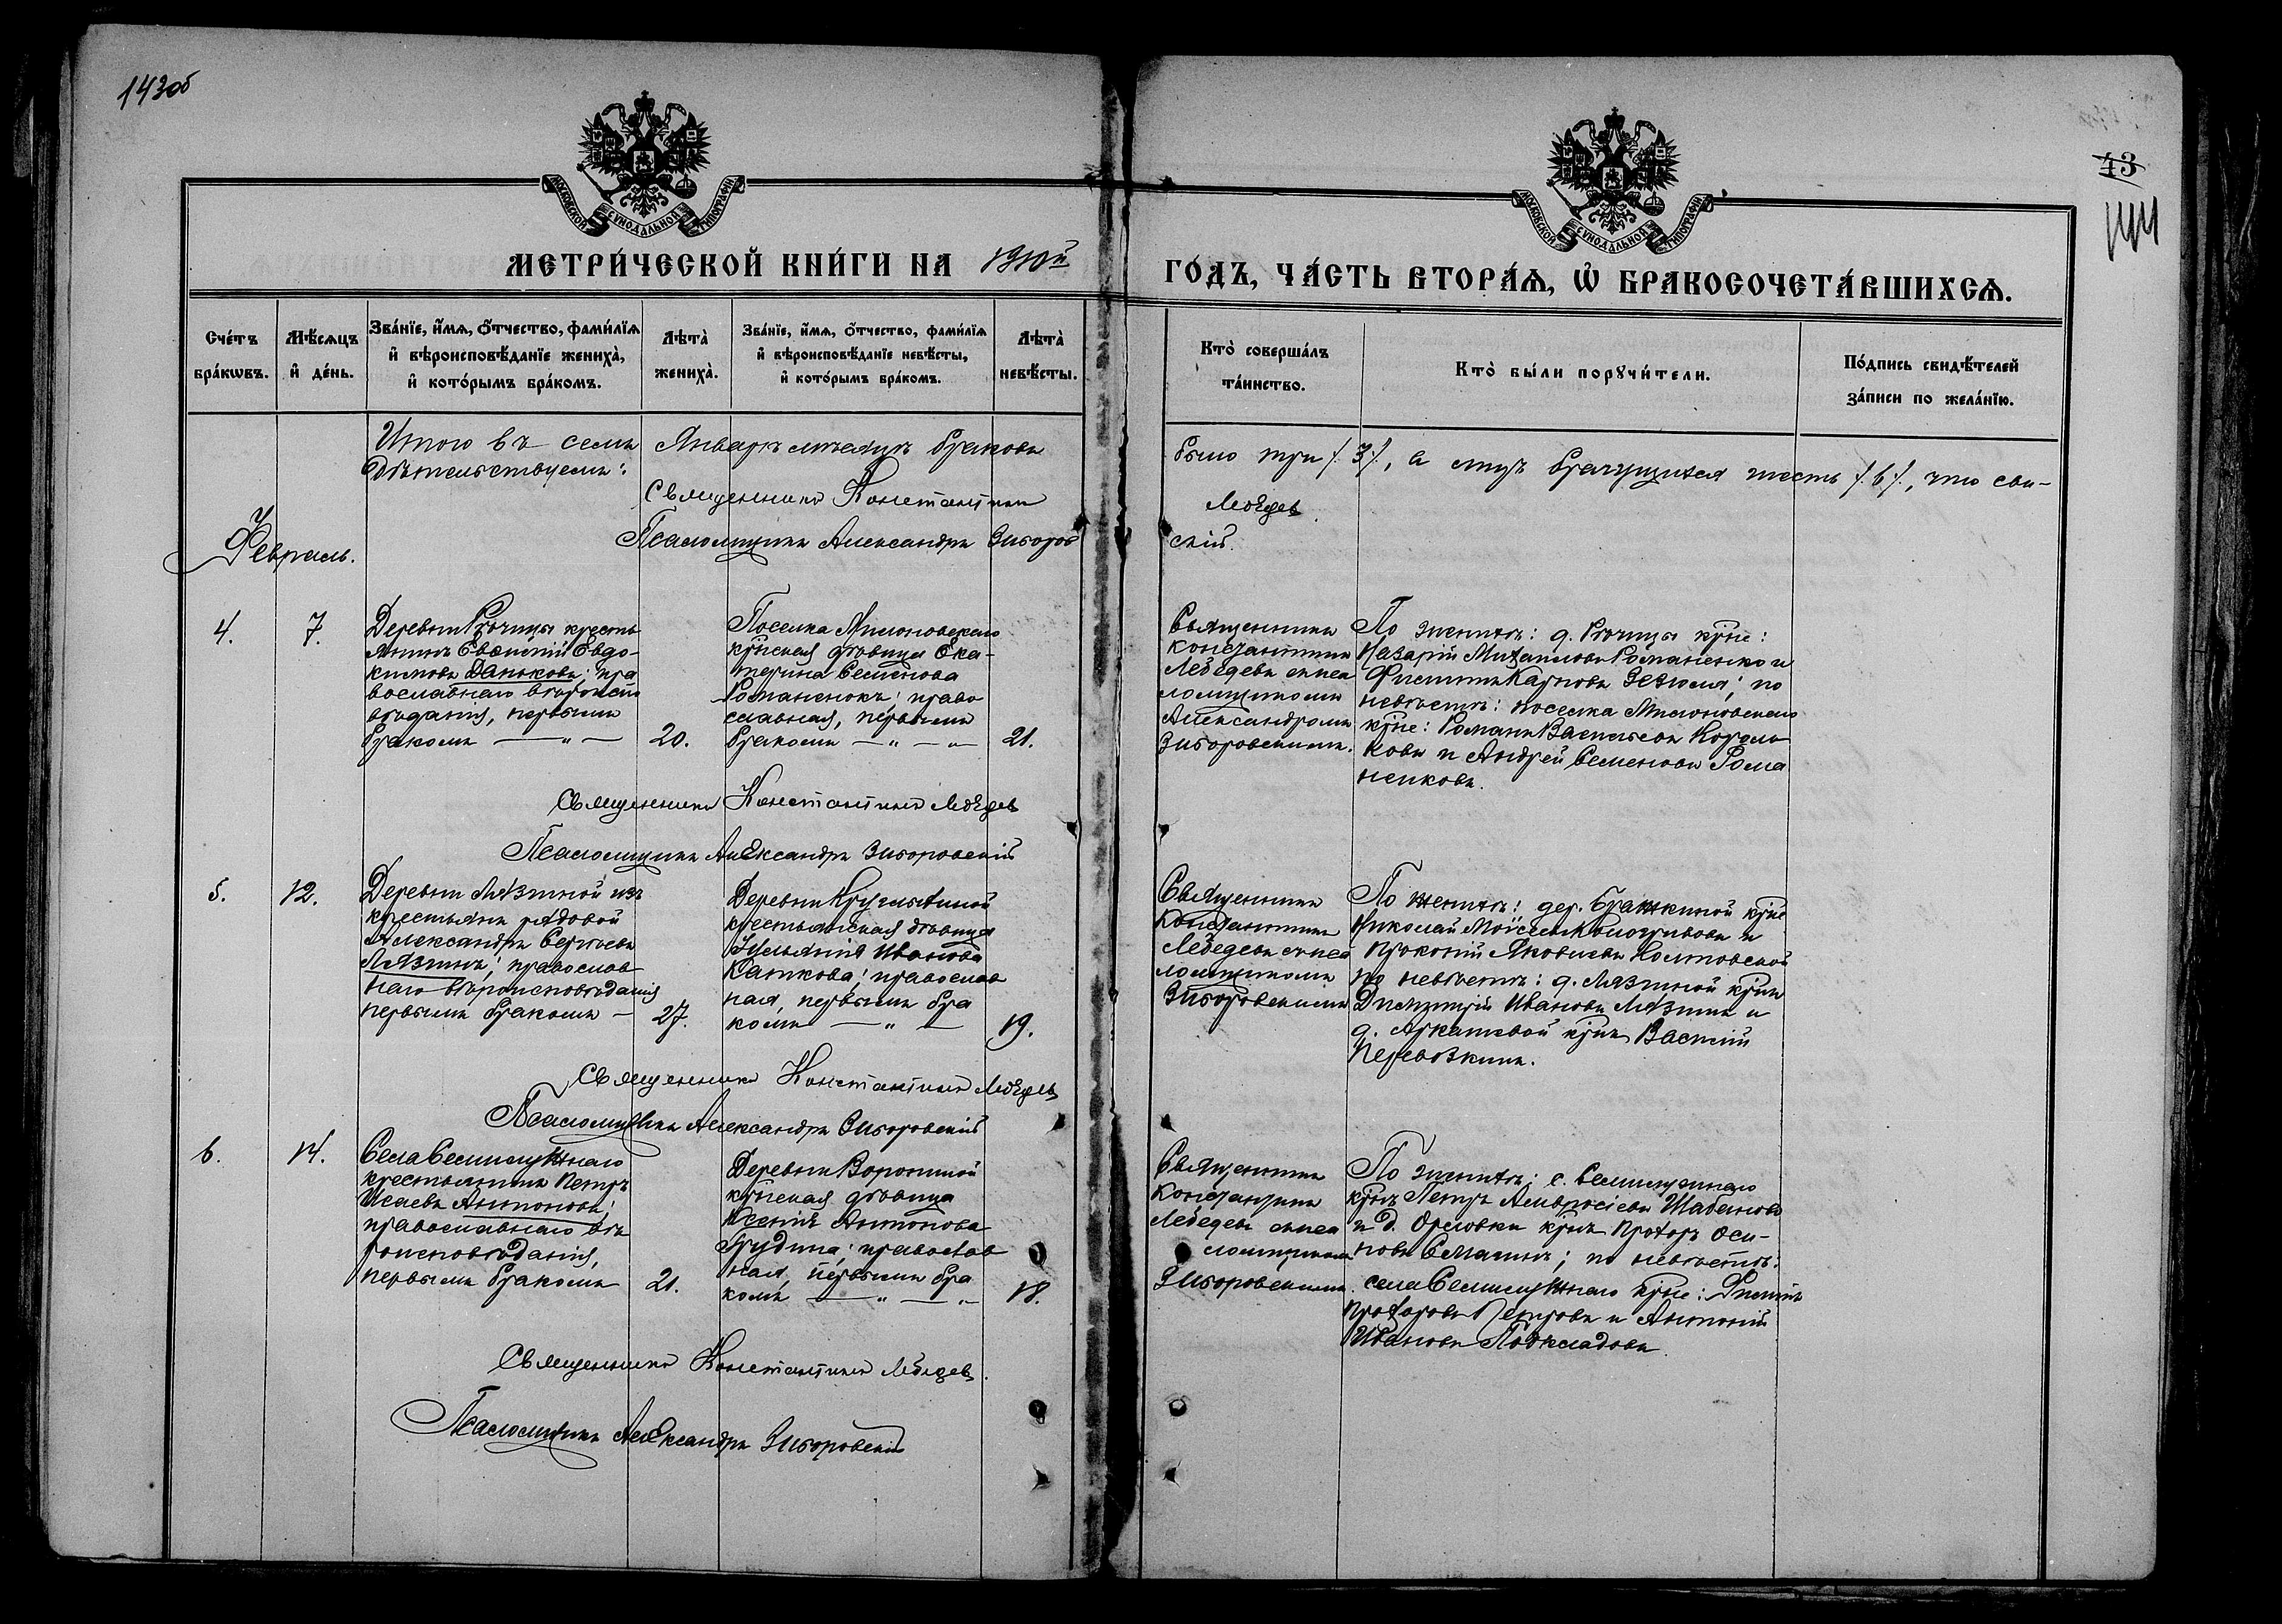 143об
МОСКОВСКОЙ СѴНОДАЛЬНОЙ ТИПОГРАФІИ
МОСКОВСКОЙ СѴНОДАЛЬНОЙ ТИПОГРАФІИ
43
144
МЕТРИ́ЧЕСКОЙ КНИ́ГИ НА 1910й ГО́ДЪ, ЧА́СТЬ ВТОРА́Ѧ, Ѡ҆ БРАКОСОЧЕТА́ВШИХСѦ.
Сче́тъ бра́кωвъ.
Мѣ́сѧцъ и҆ де́нь.
Зва́нїе, и҆́мѧ, ѻ҆́тчество, фами́лїѧ и҆ вѣроисповѣ́данїе жениха̀, и҆ кото́рымъ бра́комъ.
Лѣта̀ жениха̀.
Зва́нїе, и҆́мѧ, ѻ҆́тчество, фами́лїѧ и҆ вѣроисповѣ́данїе невѣ́сты, и҆ кото́рымъ бра́комъ.
Лѣта̀ невѣ́сты.
Кто̀ соверша́лъ та́инство.
Кто̀ бы́ли порꙋчи́тели.
По́дпись свидѣ́телей за́писи по жела́нїю.
Итого въ семъ Январѣ мѣсяцѣ браковъ было три /.3./, а лицъ брачущихся шесть /.6./, что сви-
дѣтельствуемъ:
Священникъ Константинъ Лебедев
Псаломщикъ Александръ Зиборовскій.
Февраль.
4.
7.
Деревни Рѣчицы кресть
янинъ Евѳимій Евдо-
кимовъ Даньковъ; пра
вославнаго вѣроиспо
вѣданія, первымъ
бракомъ — „ —
20.
Поселка Милоновскаго
крѣская дѣвица Ека-
терина Семенова
Романенокъ; право
славная, первымъ
бракомъ — „ — „
21.
Священникъ
Константинъ
Лебедевъ съ пса
ломщикомъ
Александромъ
Зиборовскимъ.
По женихѣ: д. Рѣчицы крне:
Назарій Михаиловъ Романенко и
Филиппъ Карповъ Зезюля; по
невѣстѣ: поселка Милоновскаго
крне: Романъ Васильевъ Король
ковъ и Андрей Семеновъ Рома
ненковъ.
Священникъ Константинъ Лебедев
Псаломщикъ Александръ Зиборовскій
5.
12.
Деревни Лязиной изъ
крестьянъ рядовой
Александръ Сергѣевъ
Лязинъ; православ
наго вѣроисповѣданія
первымъ бракомъ —
27.
Деревни Кругляхиной
крестьянская дѣвица
Ульянія Иванова
Каткова; православ
ная, первымъ бра
комъ — „ —
19.
Священникъ
Константинъ
Лебедевъ съ пса
ломщикомъ
Зиборовскимъ
По женихѣ: дер. Бражкиной крне
Николай Моѵсеевъ Кологривовъ и
Прокопій Яковлевъ Колтовской
по невѣстѣ: д. Лязиной крнъ
Димитрій Ивановъ Лязинъ и
д. Аркатовой крнъ Василій
Перевозкинъ.
Священникъ Константинъ Лебедев
Псаломщикъ Александръ Зиборовскій
6.
14.
Села Семилужнаго
крестьянинъ Петръ
Исаевъ Антоновъ;
православнаго вѣ
роисповѣданія,
первымъ бракомъ
21.
Деревни Ворониной
крѣская дѣвица
Ксенія Антонова
Грудина; православ
ная, первымъ бра
комъ — „ — „
18.
Священникъ
Константинъ
Лебедевъ съ пса
ломщикомъ
Зиборовскимъ.
По женихѣ: с. Семилужнаго
крнъ Петръ Амвросіевъ Шабановъ
и д. Орловки крнъ Прохоръ Оси-
повъ Семагинъ; по невѣстѣ:
села Семилужнаго крне: Филиппъ
Прохоровъ Петровъ и Антоній
Ивановъ Поскладовъ.
Священникъ Константинъ Лебедев.
Псаломщикъ Александръ Зиборовскій